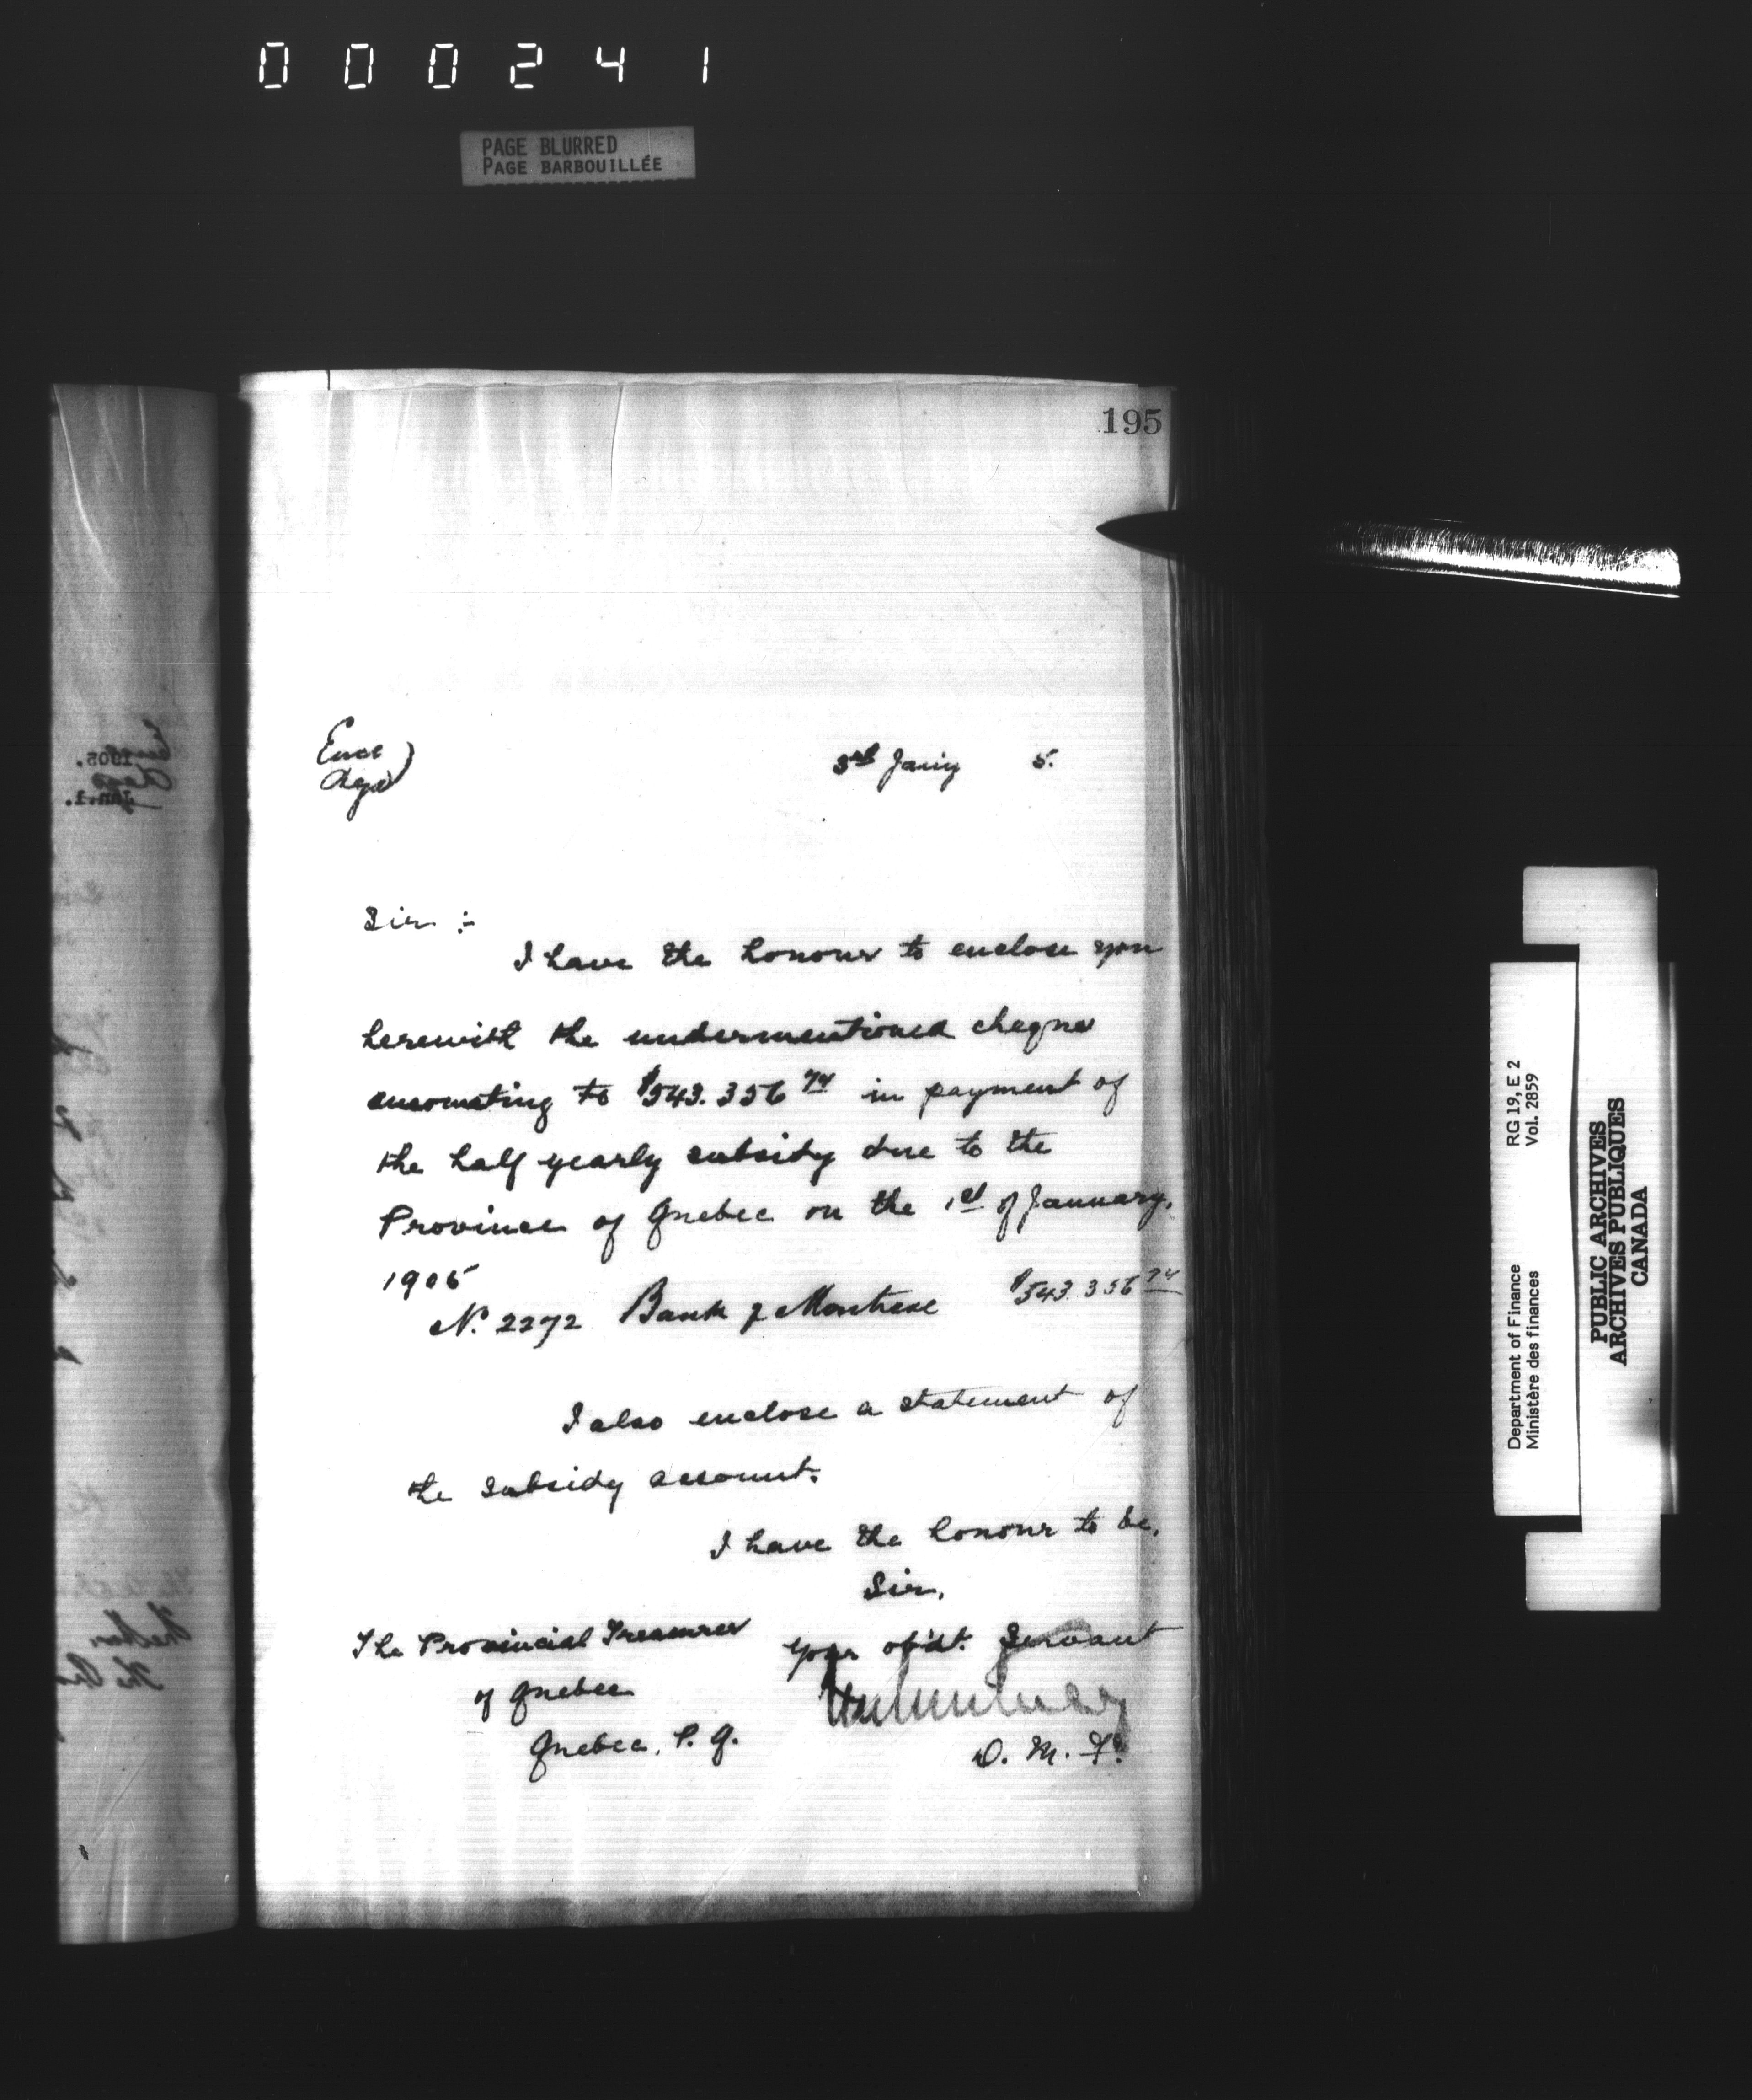 000241
PAGE BLURRED
PAGE BARBOUILLÉE
195
Encl
3rd Jan'y 5.
Sir :-
I have the honour to enclose you
herewith the undermentioned cheque
amounting to $543.356 74 in payment of
the half yearly subsidy due to the
Province of Quebec on the 1st of January,
1905
No. 2272 Bank of Montreal $543 356 74
I also enclose a statement of
the subsidy account.
I have the honour to be,
Sir,
Your ob'dt. Servant
D. M. F.
The Provincial Treasurer
of Quebec
Quebec, P. Q.
1905.
Jan.1.
Department of Finance RG 19, E 2
Ministère des finances Vol. 2859
PUBLIC ARCHIVES
ARCHIVES PUBLIQUES
CANADA